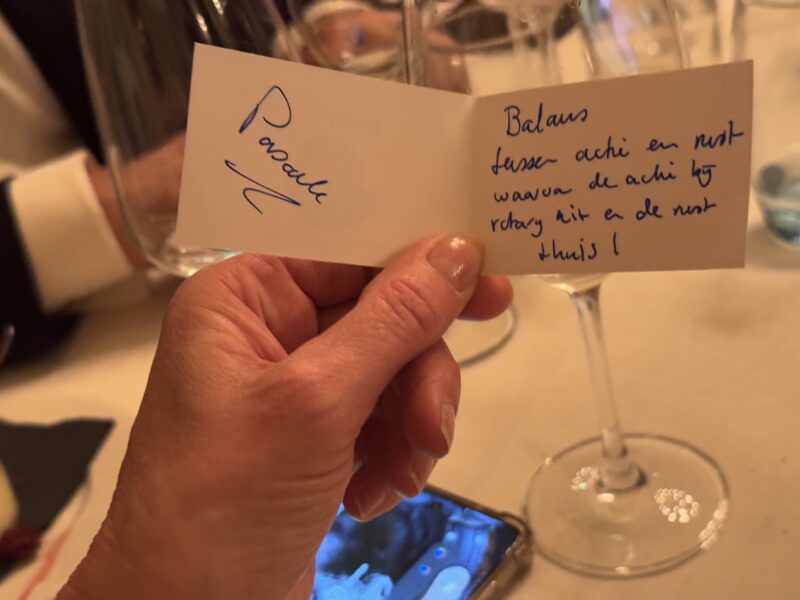 Pascale
Balans
tussen actie en rust
waarvan de actie bij
rotary zit en de rust
thuis!